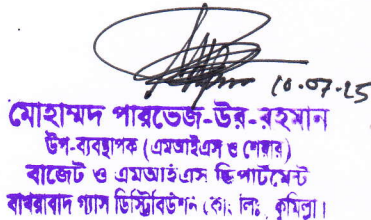 10-07-25
মোহাম্মদ পারভেজ-উর-রহমান
উপ-ব্যবস্থাপক (এমআইএস ও শেয়ার)
বাজেট ও এমআইএস ডিপার্টমেন্ট
বাখরাবাদ গ্যাস ডিস্ট্রিবিউশন কোঃ লিঃ, কুমিল্লা।